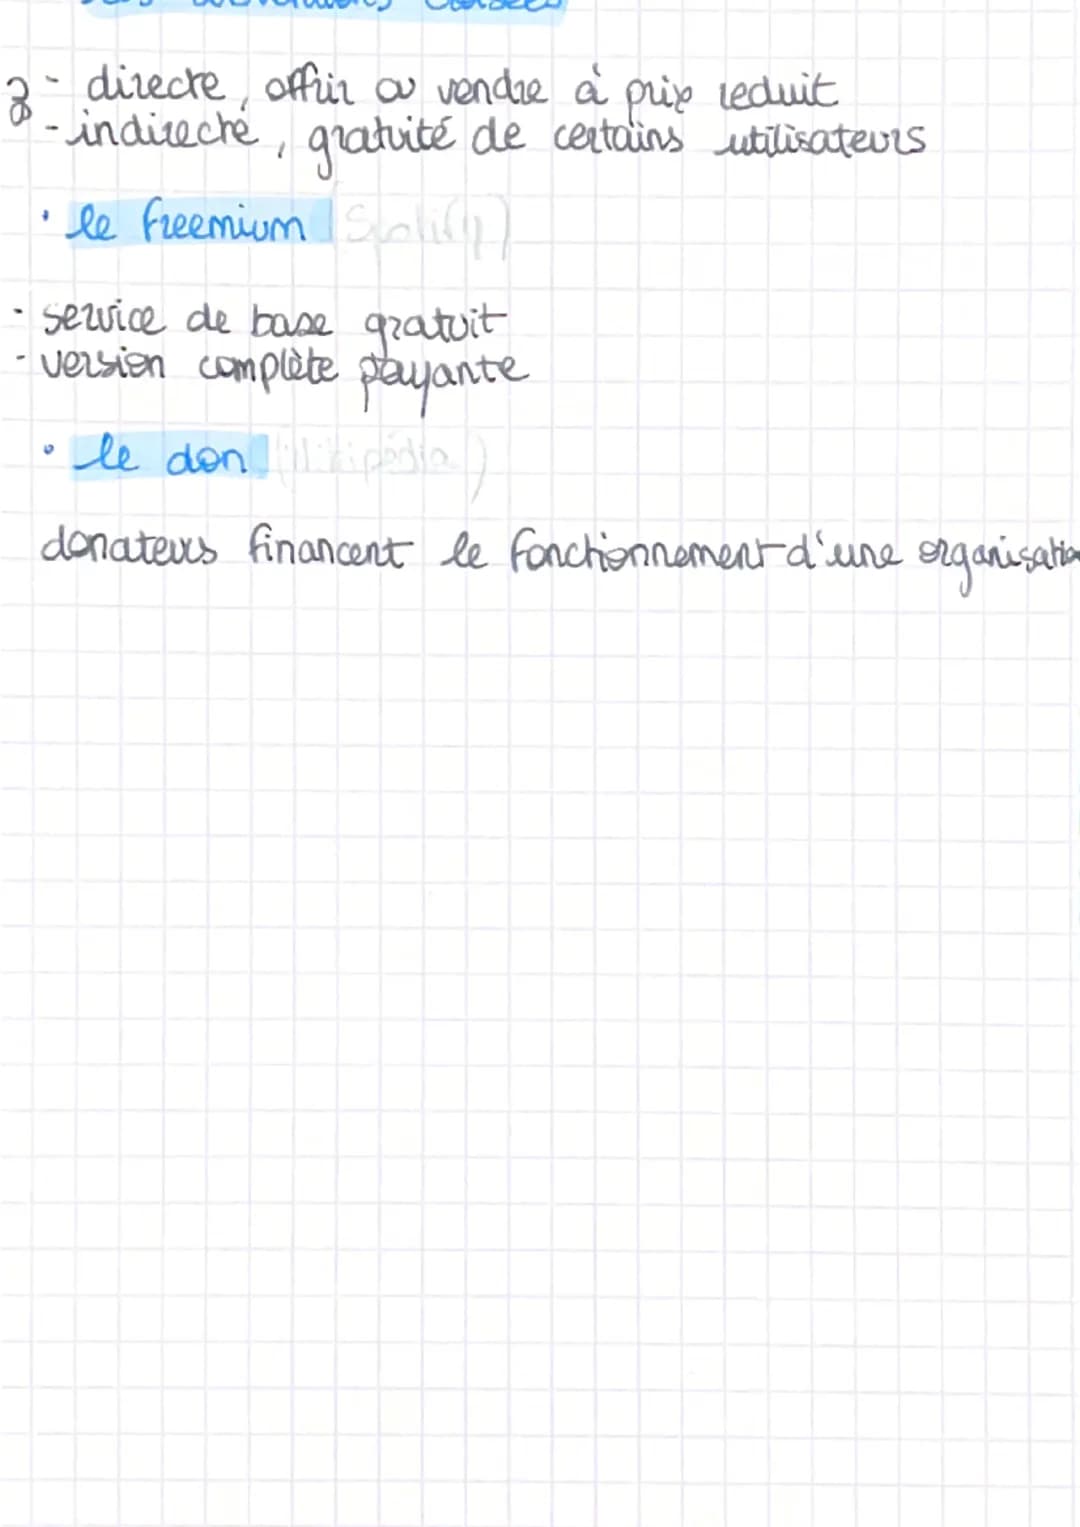 2 - directe, offrir ou vendre à prix reduit
- indirecte, gratuité de certains utilisateurs
• le freemium (Spotify)
- service de base gratuit
- version complète payante
• le don (Wikipédia)
donateurs financent le fonctionnement d'une organisation